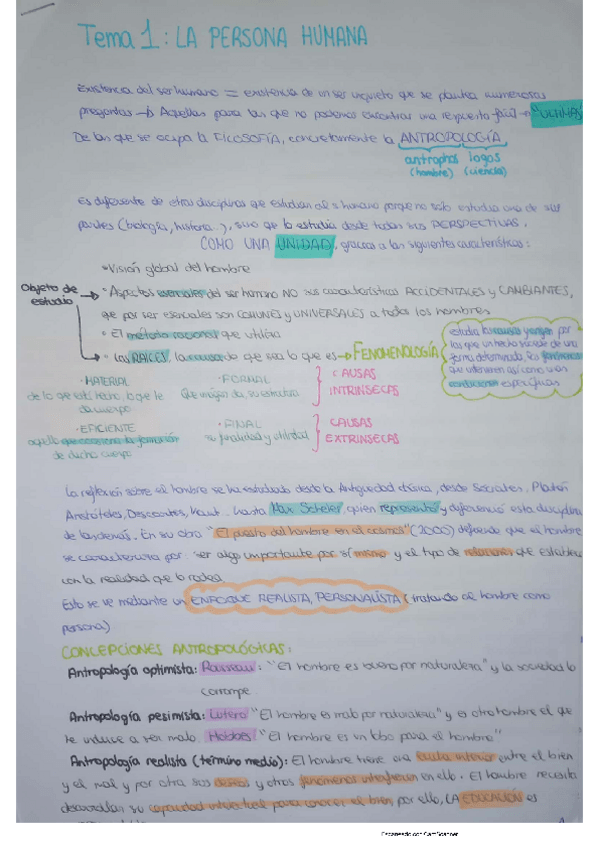 Tema 1: LA PERSONA HUMANA
Existencia del ser humano = existencia de un ser inquieto que se plantea numerosas
preguntas → Aquellas para las que no podemos encontrar una respuesta fácil → "ÚLTIMAS"
De las que se ocupa la FILOSOFÍA, concretamente la ANTROPOLOGÍA
antrophos logos
(hombre) (ciencia)
Es diferente de otras disciplinas que estudian al s. humano porque no solo estudia una de sus
partes (biología, historia...), sino que lo estudia desde todas sus PERSPECTIVAS,
COMO UNA UNIDAD, gracias a las siguientes características:
• Visión global del hombre
Objeto de estudio → • Aspectos esenciales del ser humano NO sus características ACCIDENTALES y CAMBIANTES,
que por ser esenciales son COMUNES y UNIVERSALES a todos los hombres
• El método racional que utiliza
• Las RAÍCES, la causa de que sea lo que es → FENOMENOLOGÍA
estudia las causas y origen por
las que un hecho sucede de una
forma determinada, los fenómenos
que intervienen así como unas
condiciones específicas
· MATERIAL · FORMAL CAUSAS
de lo que está hecho, lo que le Que imagen da, su estructura INTRÍNSECAS
da cuerpo
· EFICIENTE · FINAL CAUSAS
aquello que ocasiona la formación su finalidad y utilidad EXTRÍNSECAS
de dicho cuerpo
La reflexión sobre el hombre se ha estudiado desde la Antigüedad clásica, desde Sócrates, Platón
Aristóteles, Descartes, Kant.. hasta Max Scheler, quien representó y diferenció esta disciplina
de las demás. En su obra "El puesto del hombre en el cosmos" (2000) defiende que el hombre
se caracteriza por ser algo importante por sí mismo y el tipo de relaciones que establece
con la realidad que lo rodea.
Esto se ve mediante un ENFOQUE REALISTA, PERSONALISTA (tratando al hombre como
persona)
CONCEPCIONES ANTROPOLÓGICAS:
Antropología optimista: Rousseau: "El hombre es bueno por naturaleza" y la sociedad lo
corrompe.
Antropología pesimista: Lutero "El hombre es malo por naturaleza" y es otro hombre el que
te induce a ser malo. Hobbes "El hombre es un lobo para el hombre"
Antropología realista (término medio): El hombre tiene una lucha interior entre el bien
y el mal y por otra sus deseos y otros fenómenos interfieren en ello. El hombre necesita
desarrollar su capacidad intelectual para conocer el bien por ello, LA EDUCACIÓN es
Escaneado con CamScanner